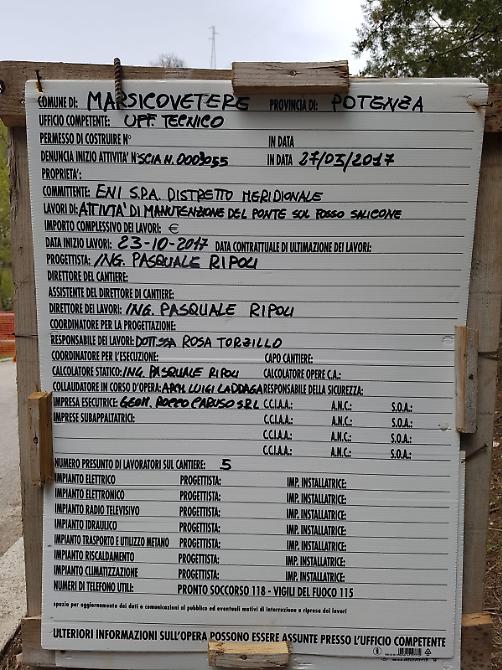 COMUNE DI: MARSICOVETERE PROVINCIA DI: POTENZA
UFFICIO COMPETENTE: UFF. TECNICO
PERMESSO DI COSTRUIRE N° IN DATA
DENUNCIA INIZIO ATTIVITA' N° SCIA N. 0003055 IN DATA 27/03/2017
PROPRIETA':
COMMITTENTE: ENI S.P.A. DISTRETTO MERIDIONALE
LAVORI DI: ATTIVITA' DI MANUTENZIONE DEL PONTE SUL FOSSO SALICONE
IMPORTO COMPLESSIVO DEI LAVORI: €
DATA INIZIO LAVORI: 23-10-2017 DATA CONTRATTUALE DI ULTIMAZIONE DEI LAVORI:
PROGETTISTA: ING. PASQUALE RIPOLI
DIRETTORE DEL CANTIERE:
ASSISTENTE DEL DIRETTORE DI CANTIERE:
DIRETTORE DEI LAVORI: ING. PASQUALE RIPOLI
COORDINATORE PER LA PROGETTAZIONE:
RESPONSABILE DEI LAVORI: DOTT.SSA ROSA TORZILLO
COORDINATORE PER L'ESECUZIONE: CAPO CANTIERE:
CALCOLATORE STATICO: ING. PASQUALE RIPOLI CALCOLATORE OPERE C.A.:
COLLAUDATORE IN CORSO D'OPERA: ARCH. LUIGI LADDAGA RESPONSABILE DELLA SICUREZZA:
IMPRESA ESECUTRICE: GEOM. ROCCO CARUSO S.R.L C.C.I.A.A.: A.N.C.: S.O.A.:
IMPRESE SUBAPPALTATRICI: C.C.I.A.A.: A.N.C.: S.O.A.:
C.C.I.A.A.: A.N.C.: S.O.A.:
C.C.I.A.A.: A.N.C.: S.O.A.:
NUMERO PRESUNTO DI LAVORATORI SUL CANTIERE: 5
IMPIANTO ELETTRICO PROGETTISTA: IMP. INSTALLATRICE:
IMPIANTO ELETTRONICO PROGETTISTA: IMP. INSTALLATRICE:
IMPIANTO RADIO TELEVISIVO PROGETTISTA: IMP. INSTALLATRICE:
IMPIANTO IDRAULICO PROGETTISTA: IMP. INSTALLATRICE:
IMPIANTO TRASPORTO E UTILIZZO METANO PROGETTISTA: IMP. INSTALLATRICE:
IMPIANTO RISCALDAMENTO PROGETTISTA: IMP. INSTALLATRICE:
IMPIANTO CLIMATIZZAZIONE PROGETTISTA: IMP. INSTALLATRICE:
NUMERI DI TELEFONO UTILI: PRONTO SOCCORSO 118 - VIGILI DEL FUOCO 115
spazio per aggiornamento dei dati e comunicazioni al pubblico ed eventuali motivi di interruzione e ripresa dei lavori
ULTERIORI INFORMAZIONI SULL'OPERA POSSONO ESSERE ASSUNTE PRESSO L'UFFICIO COMPETENTE